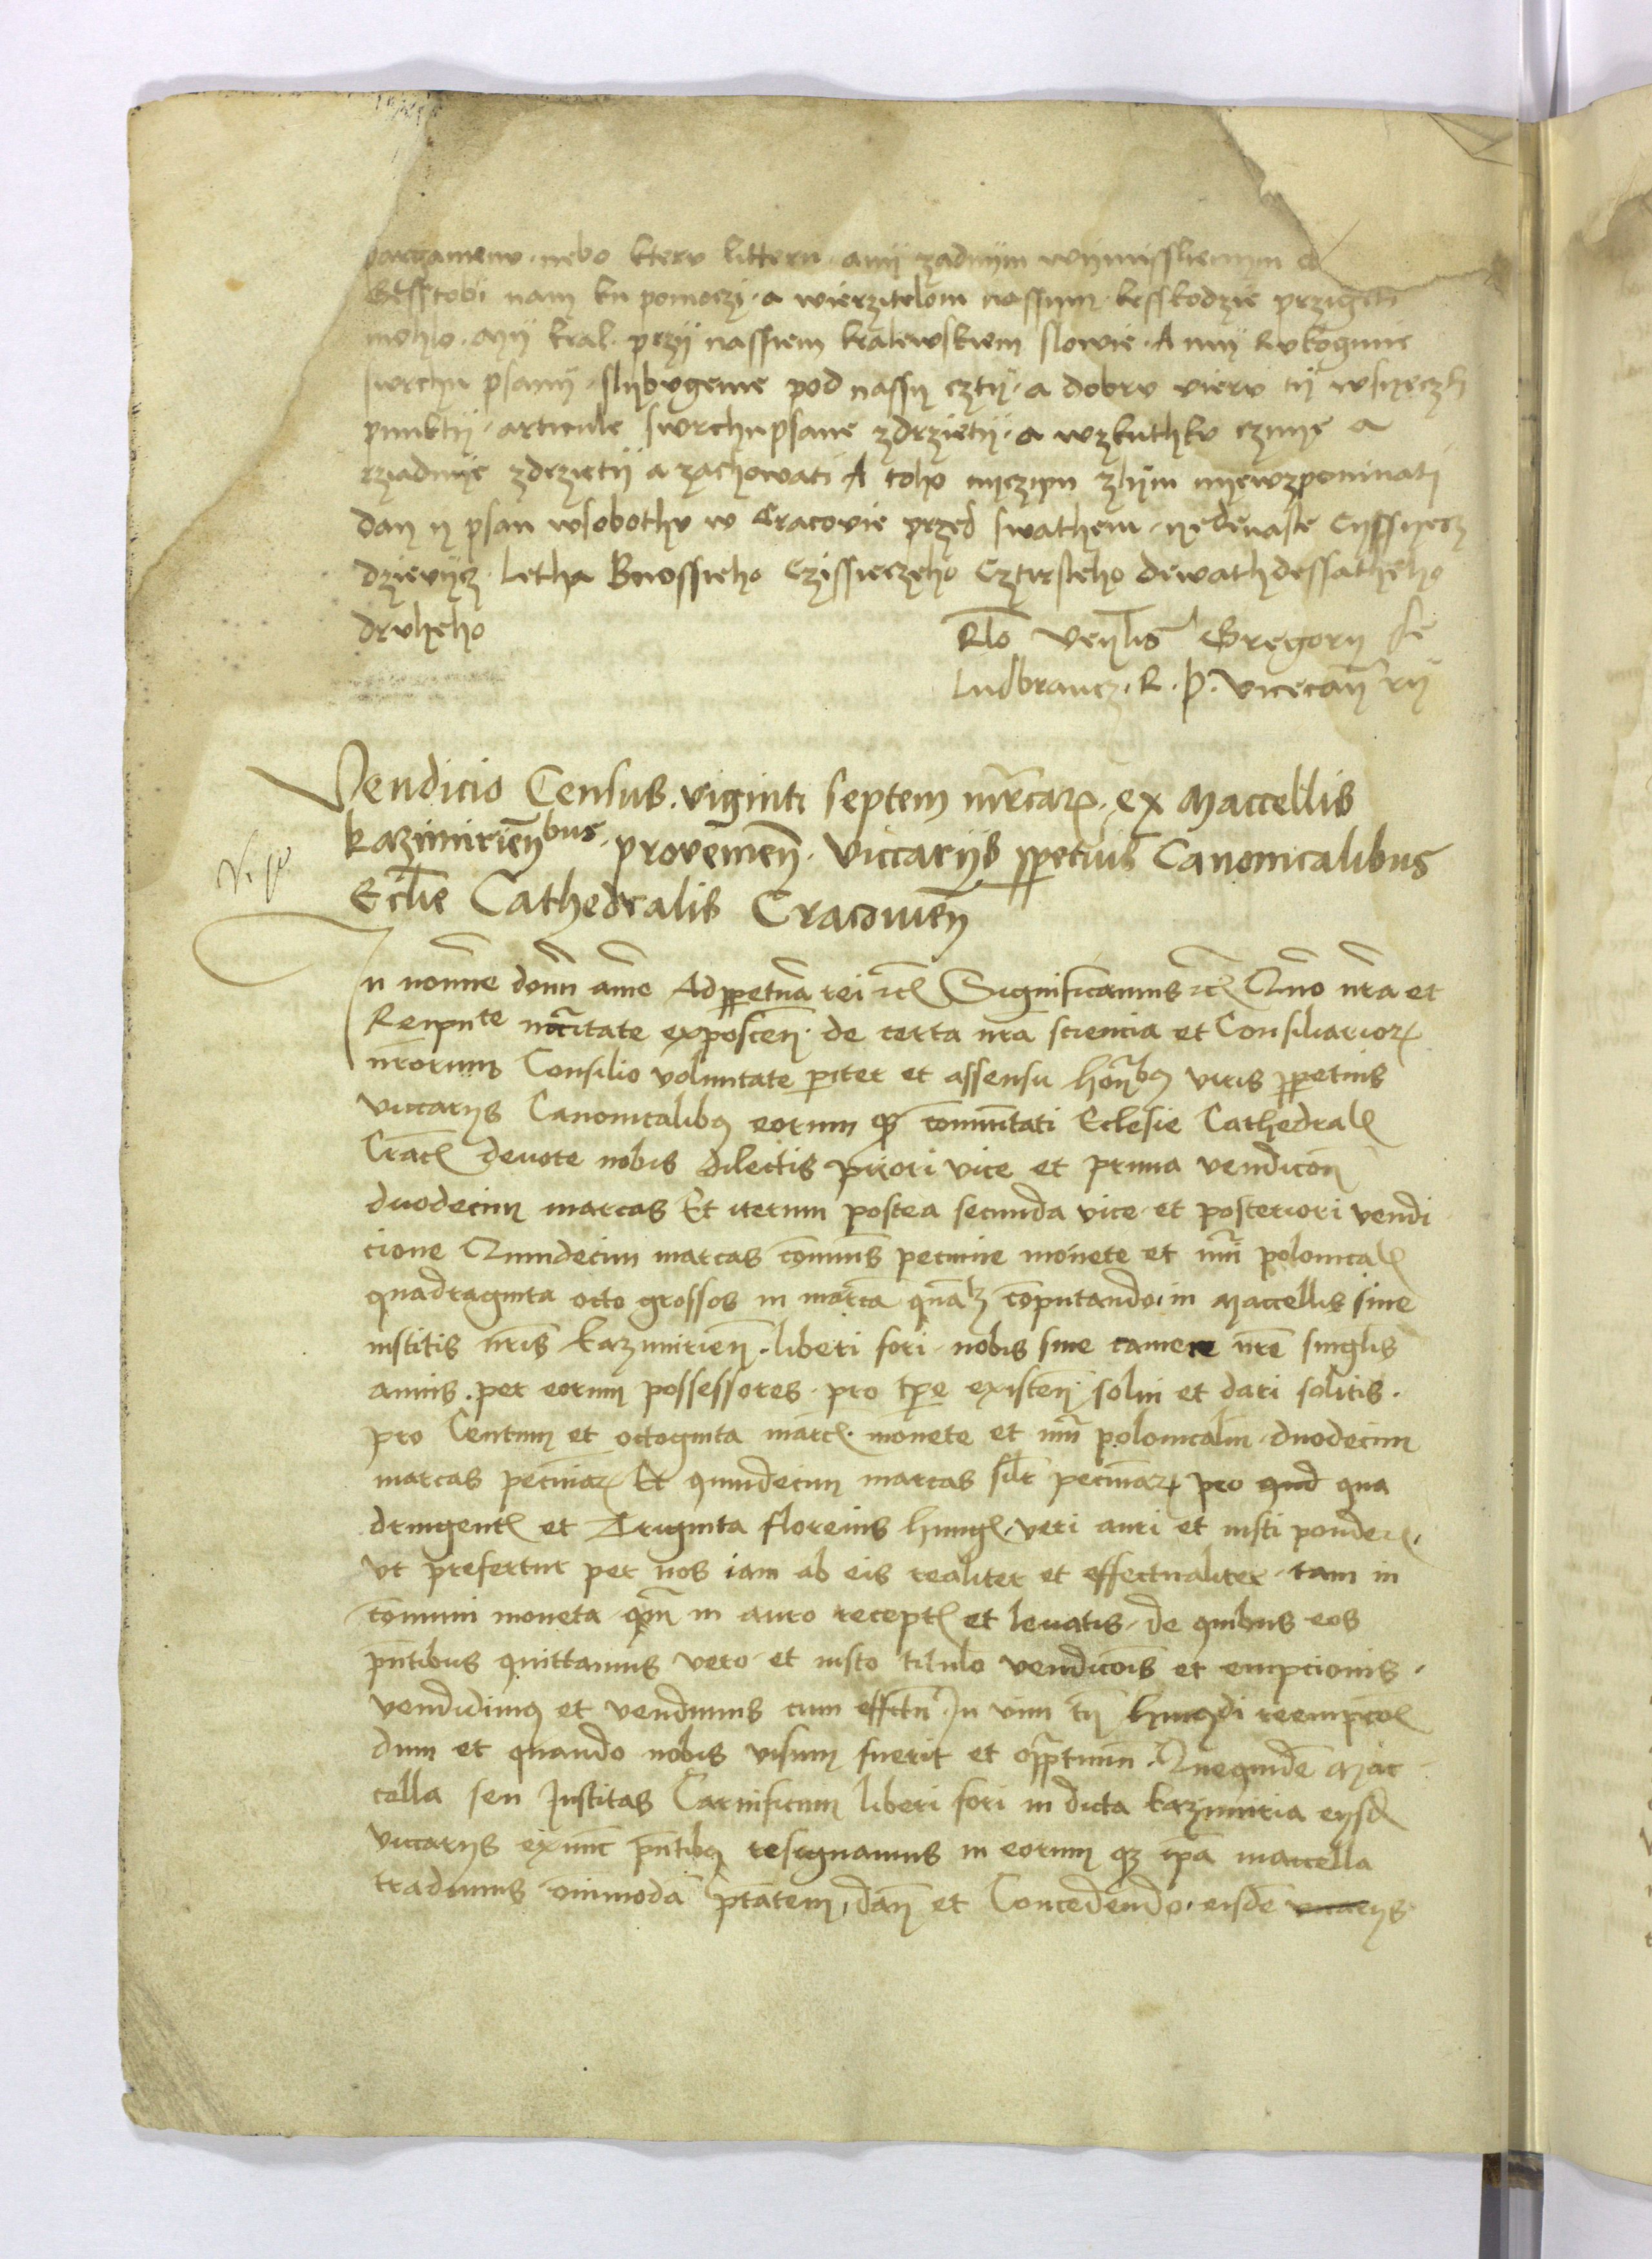 pargamenv nebo kterv litteru anij zadnijm wijmissleniym
Gessto bi nam ku pomoczi a wierzitelom nassym kesskodzie przigiti
mohlo Mij kral przij nassiem kralewskiem slowie A mij Rukogmie
swrchu psanij slijbvgeme pod nassij cztij a dobrv vierv tij wssyeczky
punktij articule swrchupsane zdrzietij a wzkuthkv czinie a
rziadnije zdrzietij a zachowati A toho nyczym zlijm nyewzpominati
dan y psan wsobothv w Cracovie przed swathem
dzievijcz Letha Bnossieho Czissieczeho Cztirsteho dewathdessatheho
drvheho
Rlo Venlis Gregorij de
Ludbrancz R. P. vicecanrij
Vendicio Census viginti septem mrcar ex Maccellis
kazimirien bus provenien viccarijs ppetuis Canonicalibus
Eclie Cathedralis Cracouien
In nomine domi ame Ad ppetua rei etc Significamus etc Quo nra et
Reipu te nccitate exposcen de certa nra sciencia et Consiliarior
nrorum Consilio voluntate piter et assensu honbq viris ppetuis
viccarijs Canonicalibq eorum q comunitati Eclesie Cathedral
Crac devote nobis dilectis priori vice et prima vendicon
duodecim marcas Et iterum postea secunda vice et posteriori vendi
cione Quindecim marcas comunis pecunie monete et nuri polonical
quadraginta octo grossos in marca qualz computando in Maccellis sive
institis nris kazimirien liberi fori nobis sive camere nre singlis
annis per eorum possessores pro tpe existen solui et dari solitis
pro Centum et octoginta marc monete et nuri polonicalm duodecim
marcas pecuniar Et quindecim marcas silr pecuniar pro quad qua
dringent et Triginta florenis hung veri auri et iusti ponder
vt prefertur per nos iam ab eis realiter et effectualiter tam in
comuni moneta qm in auro recept et levatis de quibus eos
pntibus quittamus vero et iusto titulo vendicois et empcionis
vendidimq et vendimus cum effctu In vim tn reempcois
dum et quando nobis visum fuerit et opptunu Quequide Mac
cella seu Institas Carnificum liberi fori in dicta kazimiria eijsd
viccarijs ex nunc pntibq resignamus in eorum qz ipa maccella
tradimus omnimoda ptatem dan et Concedendo eisde viccarijs